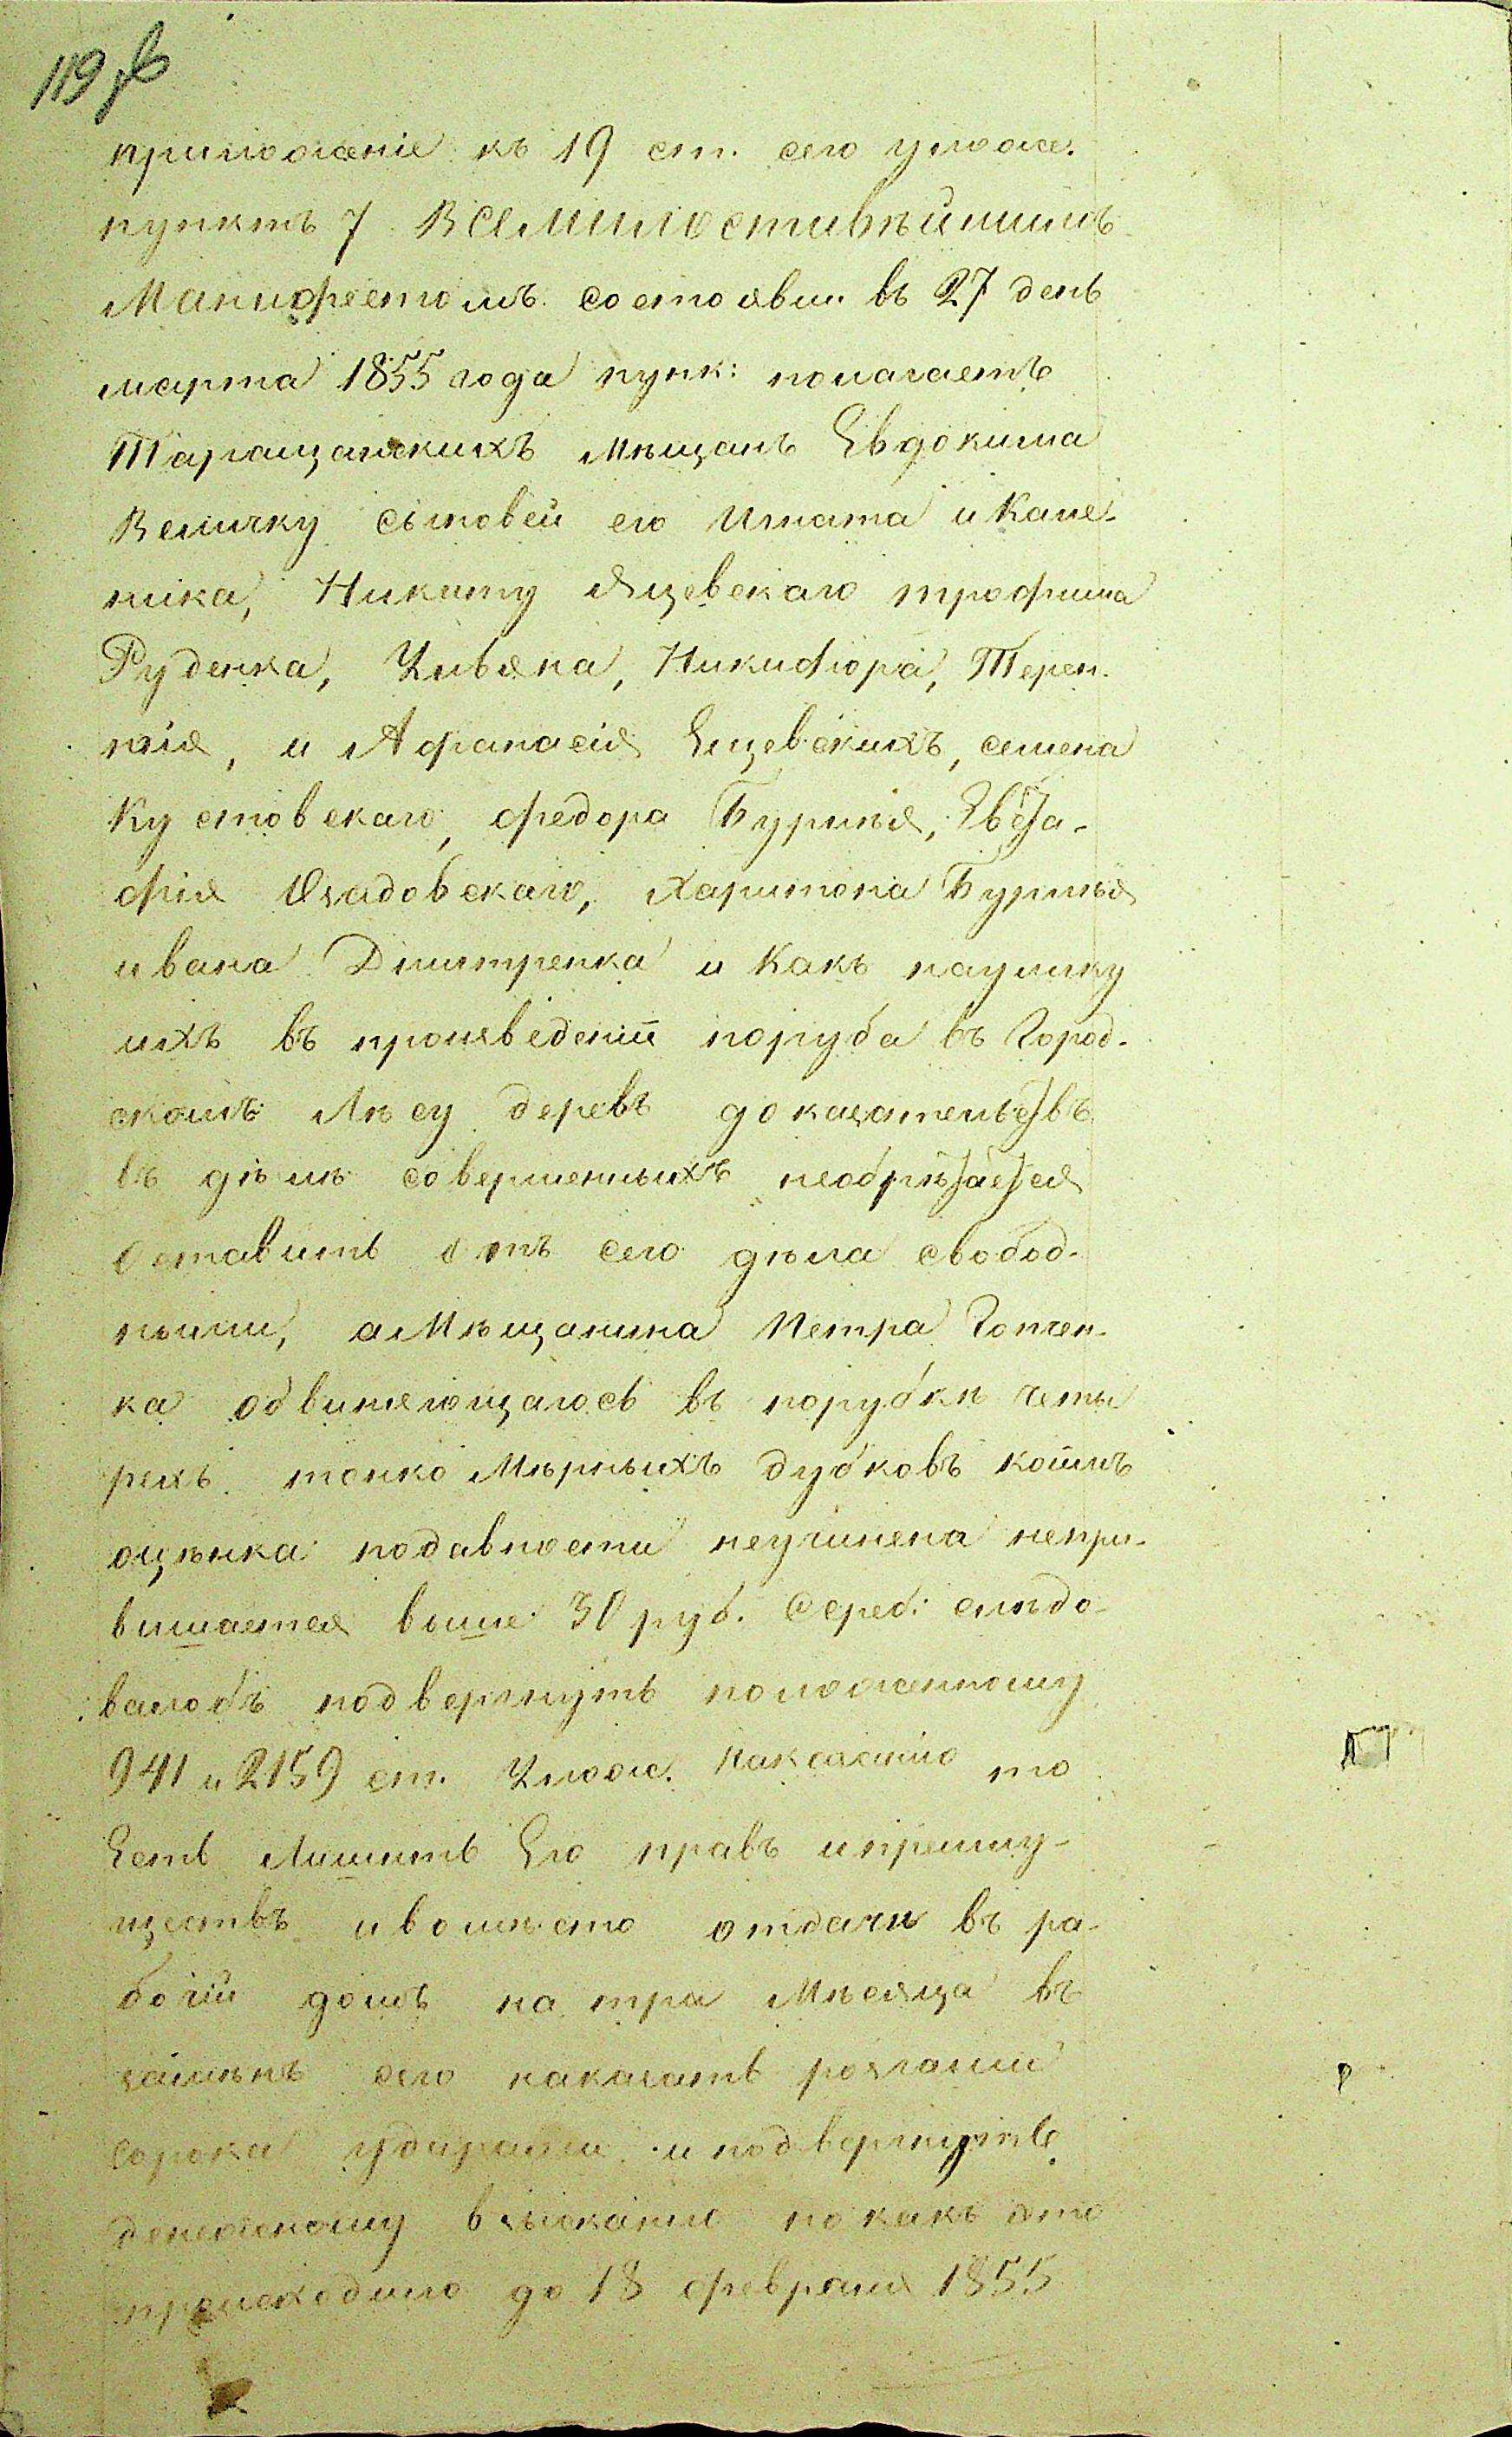 119 об
приложеніе къ 19 ст. сего улож.
пунктъ 7 Всемилостивѣйшимъ
Манифестомъ состоявш. въ 27 день
марта 1855 года пунк: полагаетъ
Таращанскихъ мѣщанъ Евдокима
Величку сыновей его Игната и Кале-
ника, Никиту Яцевскаго трофима
Руденка, Ульяна, Никифора, Терен-
тія, и Афанасія Яцевскихъ, семена
Кустовскаго, федора Бурлья, Евста-
фія Садовскаго, Харитона Бурлья
ивана Дмитренка и Какъ наулику
ихъ въ произведеніи поруба въ Город-
скомъ Лѣсу деревъ доказательствъ
въ дѣлѣ совершенныхъ необрѣтается
Оставить отъ сего дѣла свобод-
ными, аМѣщанина Петра Гончен-
ка обвиняющагось въ порубкѣ четы
рехъ тонкоМѣрныхъ дубковъ коимъ
оцѣнка подавности неучинена непри-
вишается выше 30 руб. Сереб: слѣдо-
валобъ подвергнуть положенному
941 и 2159 ст. Улож. Наказанію то
Есть Лишить Его правъ ипреиму-
ществъ ивомѣсто отдачи въ ра-
бочій домъ на три Мѣсяца въ
замѣнъ сего наказать розгами
сорока ударами иподвергнуть
денежному взысканію но какъ это
происходило до 18 февраля 1855